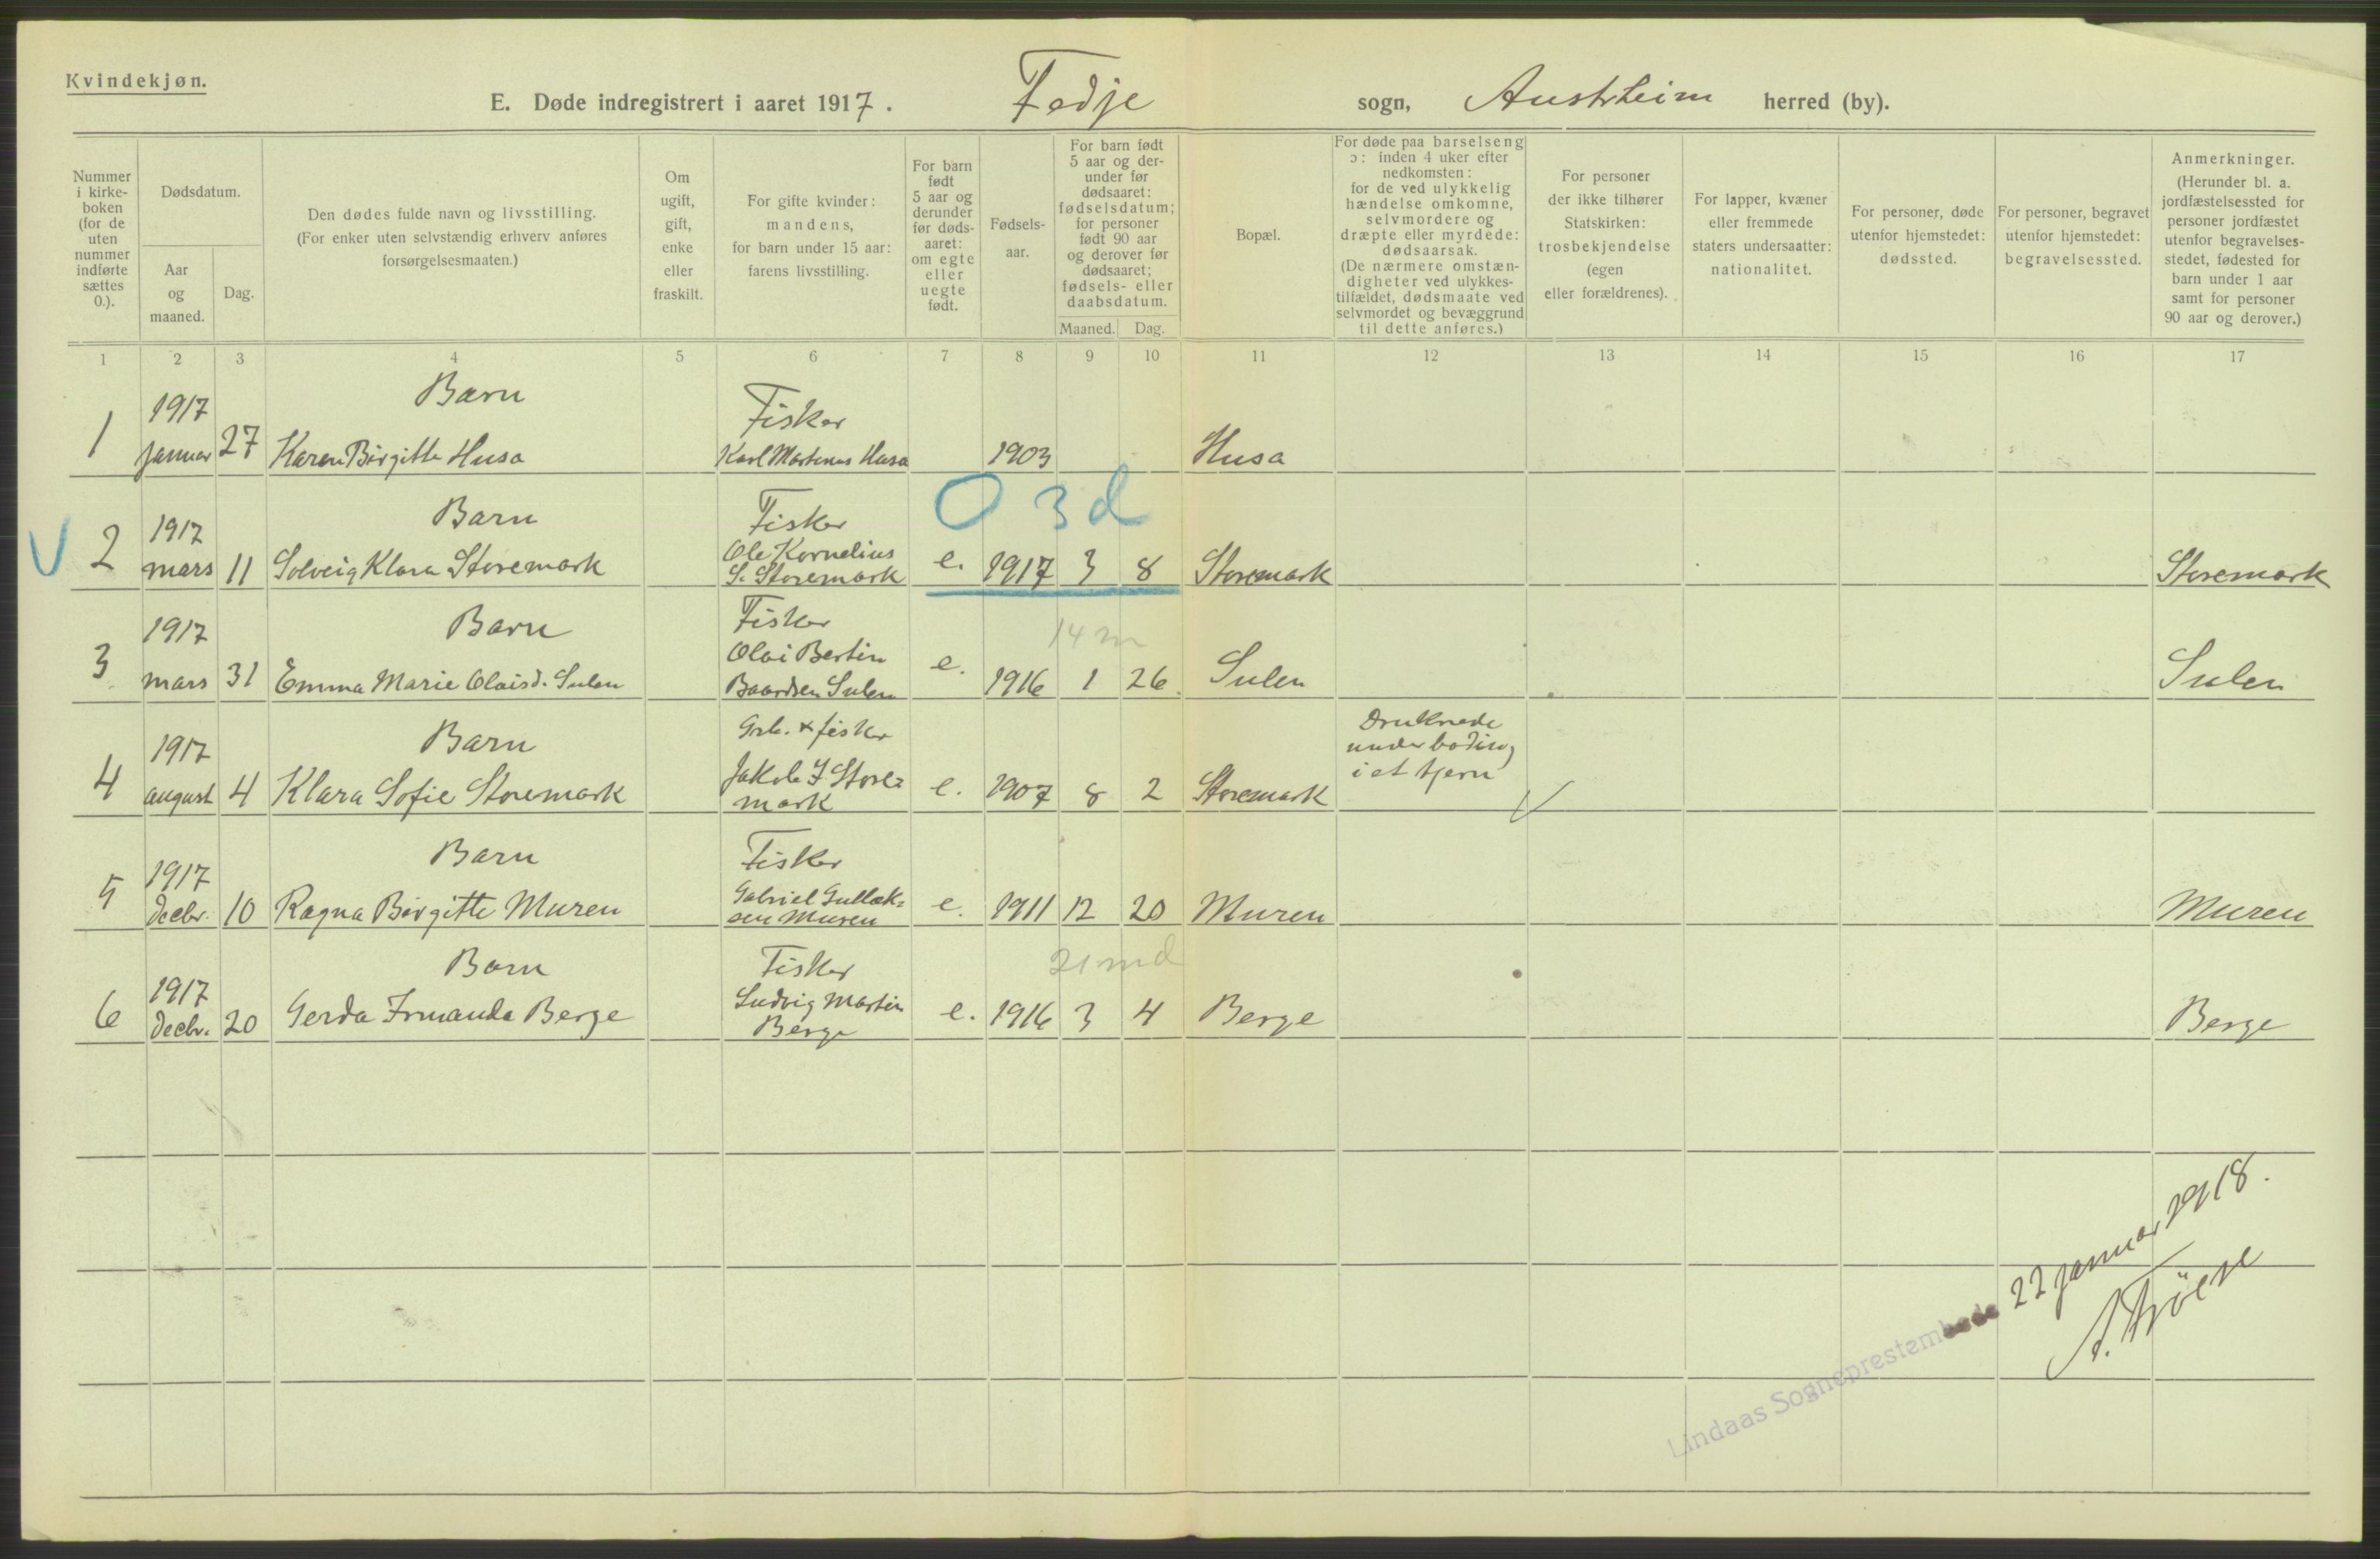 Kvindekjøn.
E. Døde indregistrert i aaret 1917. Fedje sogn, Austrheim herred (by).
Nummer i kirke-boken (for de uten nummer indførte sættes 0.).
Dødsdatum.
Aar og maaned.
Dag.
Den dødes fulde navn og livsstilling.
(For enker uten selvstændig erhverv anføres forsørgelsesmaaten.)
Om ugift, gift, enke eller fraskilt.
For gifte kvinder: mandens, for barn under 15 aar: farens livsstilling.
For barn født 5 aar og derunder før døds-aaret: om egte eller uegte født.
Fødsels-aar.
For barn født 5 aar og der-under før dødsaaret: fødselsdatum; for personer født 90 aar og derover før dødsaaret; fødsels- eller daabsdatum.
Maaned. Dag.
Bopæl.
For døde paa barselseng ɔ: inden 4 uker efter nedkomsten: for de ved ulykkelig hændelse omkomne, selvmordere og dræpte eller myrdede: dødsaarsak. (De nærmere omstæn-digheter ved ulykkes-tilfældet, dødsmaate ved selvmordet og bevæggrund til dette anføres.)
For personer der ikke tilhører Statskirken: trosbekjendelse (egen eller forældrenes).
For lapper, kvæner eller fremmede staters undersaatter: nationalitet.
For personer, døde utenfor hjemstedet: dødssted.
For personer, begravet utenfor hjemstedet: begravelsessted.
Anmerkninger. (Herunder bl. a. jordfæstelsessted for personer jordfæstet utenfor begravelses-stedet, fødested for barn under 1 aar samt for personer 90 aar og derover.)
1 2 3 4 5 6 7 8 9 10 11 12 13 14 15 16 17
1 1917 Januar 27 Barn Karen Birgitte Husa Fisker Karl Martinus Husa 1903 Husa
O 3 d
V 2 1917 mars 11 Barn Solveig Klara Storemark Fisker Ole Kornelius S. Storemark e. 1917 3 8 Storemark Storemark
14 m
3 1917 mars 31 Barn Emma Marie Olaisd. Sulen Fisker Olai Bertin Baardsen Sulen e. 1916 1 26. Sulen Sulen
4 1917 august 4 Barn Klara Sofie Storemark Grb. + fisker Jakob I Store= mark e. 1907 8 2 Storemark Druknede under bading i et tjern
5 1917 Decbr. 10 Barn Ragna Birgitte Muren Fisker Gabriel Gullak= sen Muren e. 1911 12 20 Muren Muren
21 md
6 1917 Decbr. 20 Barn Gerda Irmanda Berge Fisker Ludvig Martin Berge e. 1916 3 4 Berge Berge
Lindaas Sogneprestembede 22 januar 1918.